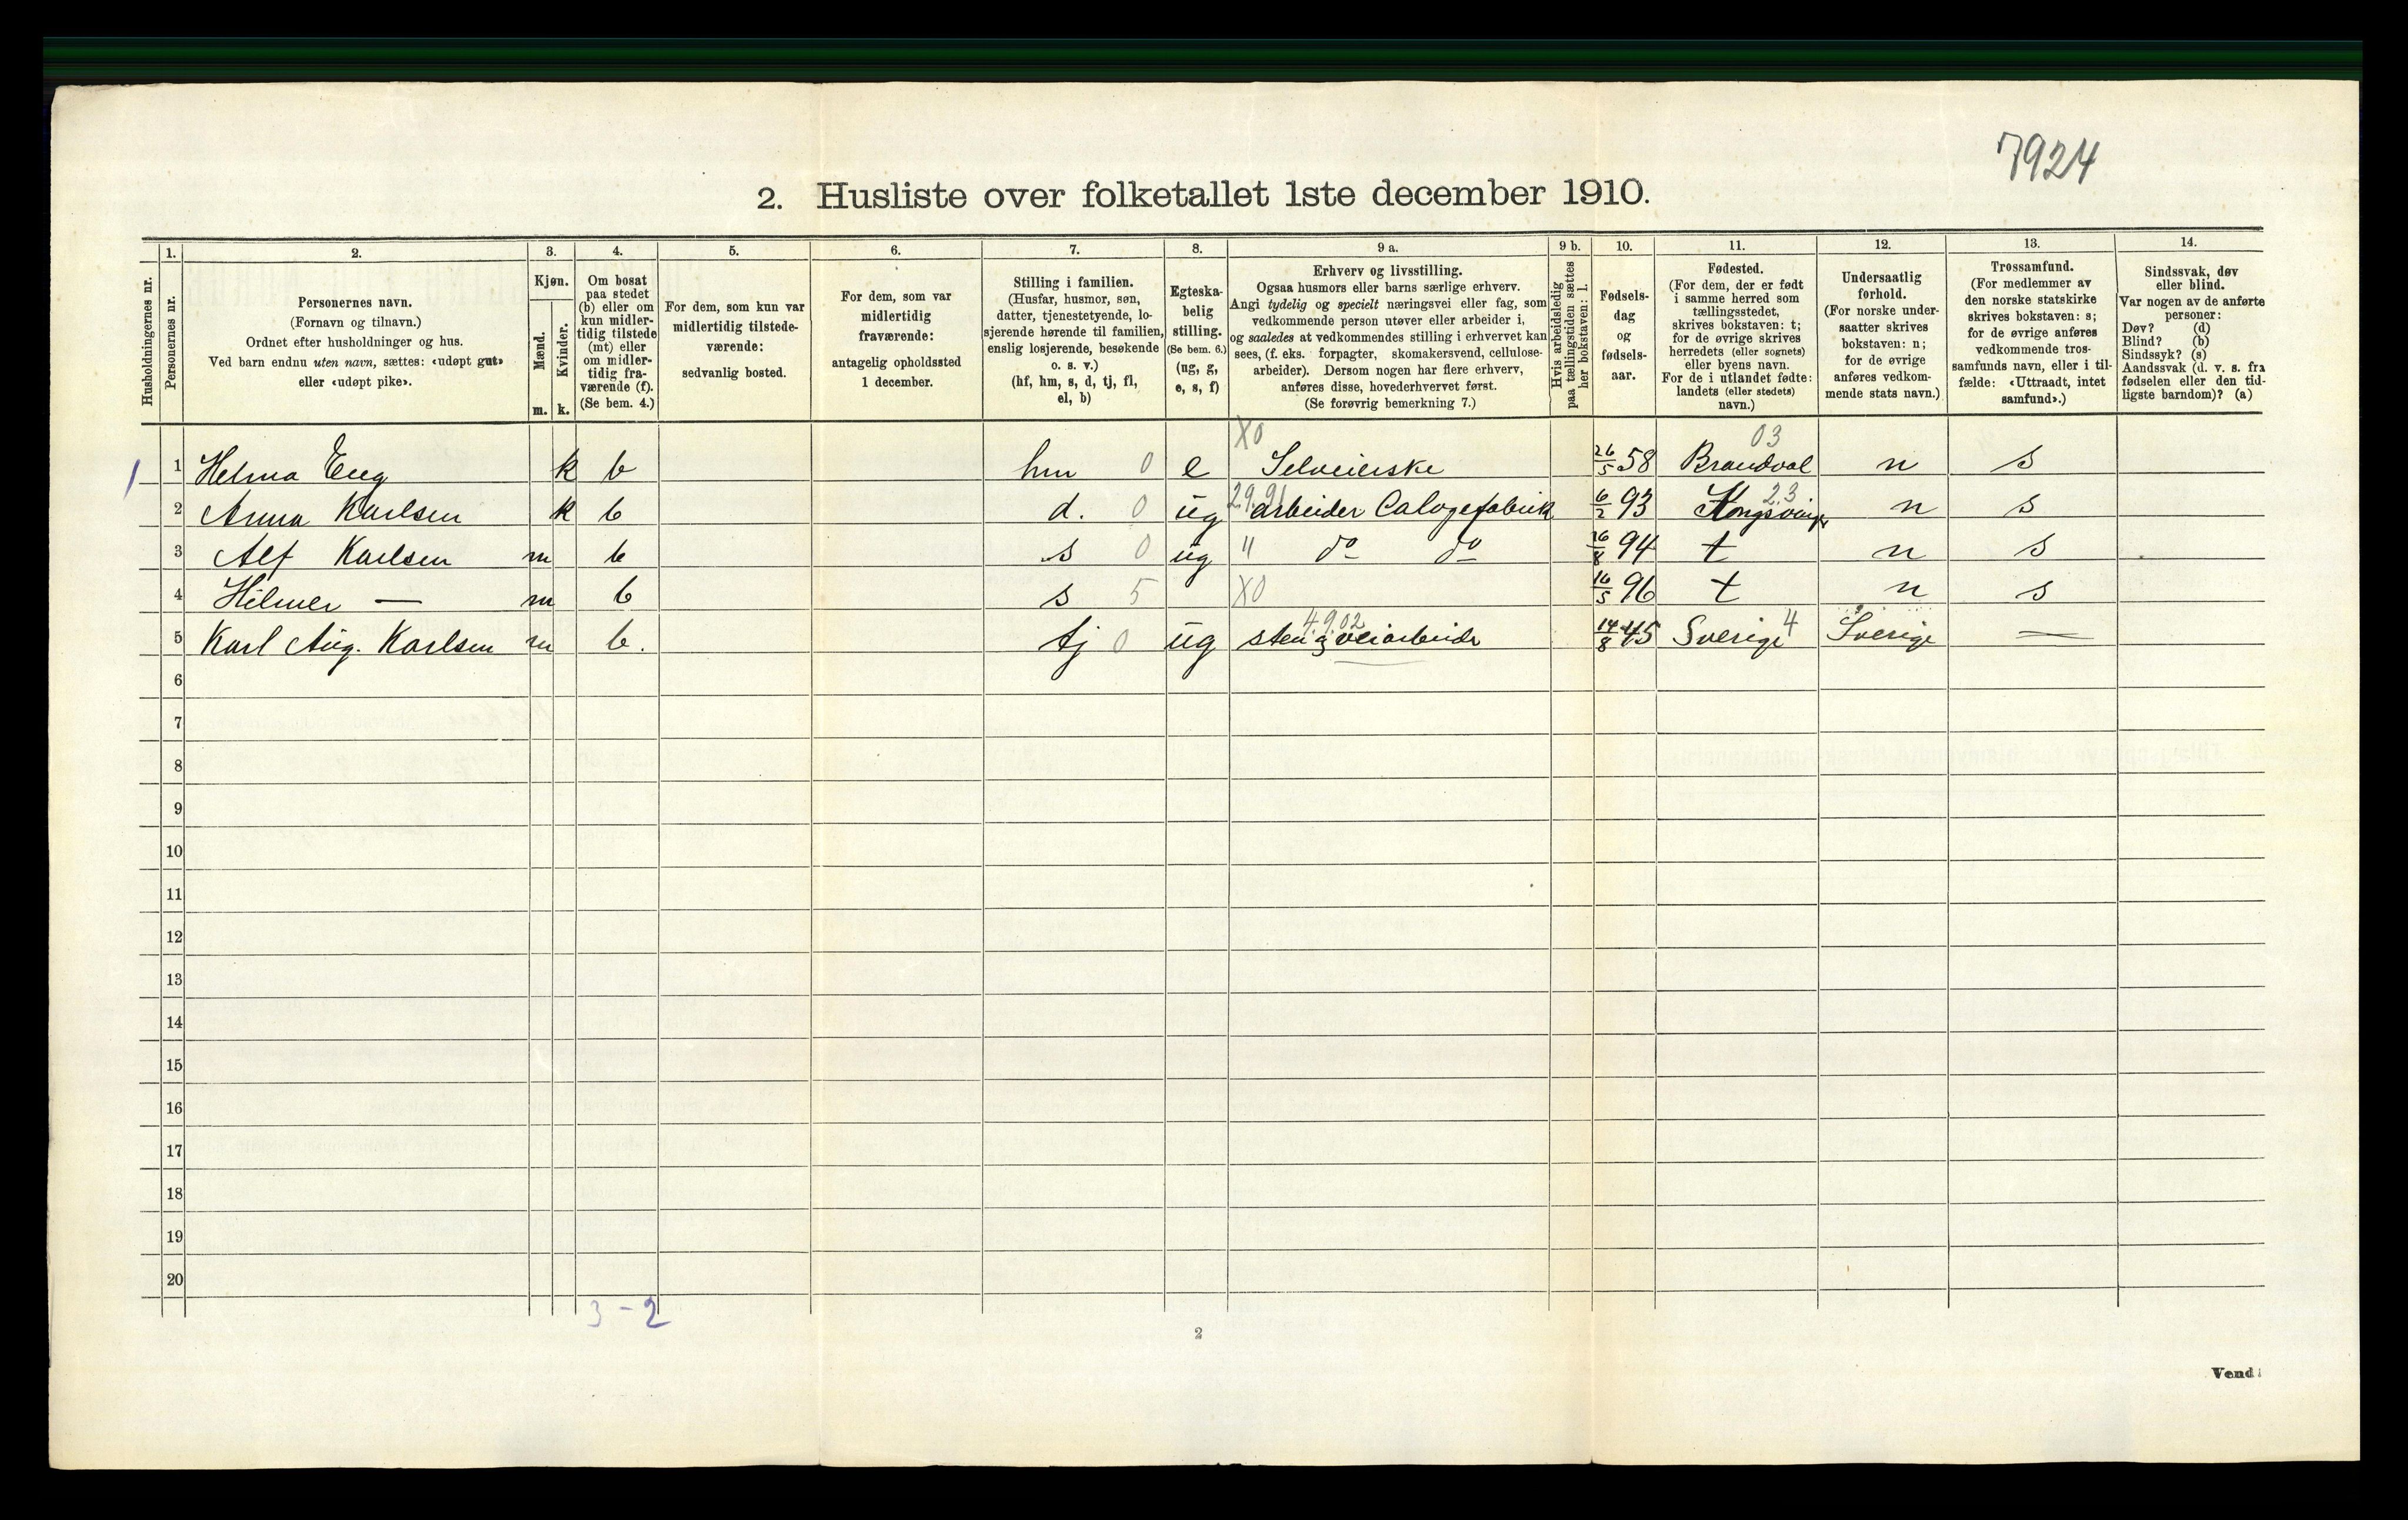 7924
2. Husliste over folketallet 1ste december 1910.
1. 2. 3. 4. 5. 6. 7. 8. 9 a. 9 b. 10. 11. 12. 13. 14.
Husholdningernes nr.
Personernes nr.
Personernes navn.
(Fornavn og tilnavn.)
Ordnet efter husholdninger og hus.
Ved barn endnu uten navn, sættes: «udøpt gut»
eller «udøpt pike».
Kjøn.
Mænd.
Kvinder.
m. k.
Om bosat
paa stedet
(b) eller om
kun midler-
tidig tilstede
(mt) eller
om midler-
tidig fra-
værende (f).
(Se bem. 4.)
For dem, som kun var
midlertidig tilstede-
værende:
sedvanlig bosted.
For dem, som var
midlertidig
fraværende:
antagelig opholdssted
1 december.
Stilling i familien.
(Husfar, husmor, søn,
datter, tjenestetyende, lo-
sjerende hørende til familien,
enslig losjerende, besøkende
o. s. v.)
(hf, hm, s, d, tj, fl,
el, b)
Egteska-
belig
stilling.
(Se bem. 6.)
(ug, g,
e, s, f)
Erhverv og livsstilling.
Ogsaa husmors eller barns særlige erhverv.
Angi tydelig og specielt næringsvei eller fag, som
vedkommende person utøver eller arbeider i,
og saaledes at vedkommendes stilling i erhvervet kan
sees, (f. eks. forpagter, skomakersvend, cellulose-
arbeider). Dersom nogen har flere erhverv,
anføres disse, hovederhvervet først.
(Se forøvrig bemerkning 7.)
Hvis arbeidsledig
paa tællingstiden sættes
her bokstaven: l.
Fødsels-
dag
og
fødsels-
aar.
Fødested.
(For dem, der er født
i samme herred som
tællingsstedet,
skrives bokstaven: t;
for de øvrige skrives
herredets (eller sognets)
eller byens navn.
For de i utlandet fødte:
landets (eller stedets)
navn.)
Undersaatlig
forhold.
(For norske under-
saatter skrives
bokstaven: n;
for de øvrige
anføres vedkom-
mende stats navn.)
Trossamfund.
(For medlemmer av
den norske statskirke
skrives bokstaven: s;
for de øvrige anføres
vedkommende tros-
samfunds navn, eller i til-
fælde: «Uttraadt, intet
samfund».)
Sindssvak, døv
eller blind.
Var nogen av de anførte
personer:
Døv? (d)
Blind? (b)
Sindssyk? (s)
Aandssvak (d. v. s. fra
fødselen eller den tid-
ligste barndom)? (a)
X0 03
1 1 Helma Eng k b hm 0 e Selveierske 26/5 58 Brandval n s
2 Anna Karlsen k b d. 0 ug 29.91 arbeider Calogefabrik 6/2 93 Kongsvinger 23 n s
3 Alf Karlsen m b s 0 ug " do do 16/8 94 t n s
4 Hilmer — m b s 5 X0 16/5 96 t n s
4902
5 Karl Aug. Karlsen m b. tj 0 ug sten g veiarbeider 14/8 45 Sverige 4 Sverige —
6
7
8
9
10
11
12
13
14
15
16
17
18
19
20
3 - 2
2
Vend!